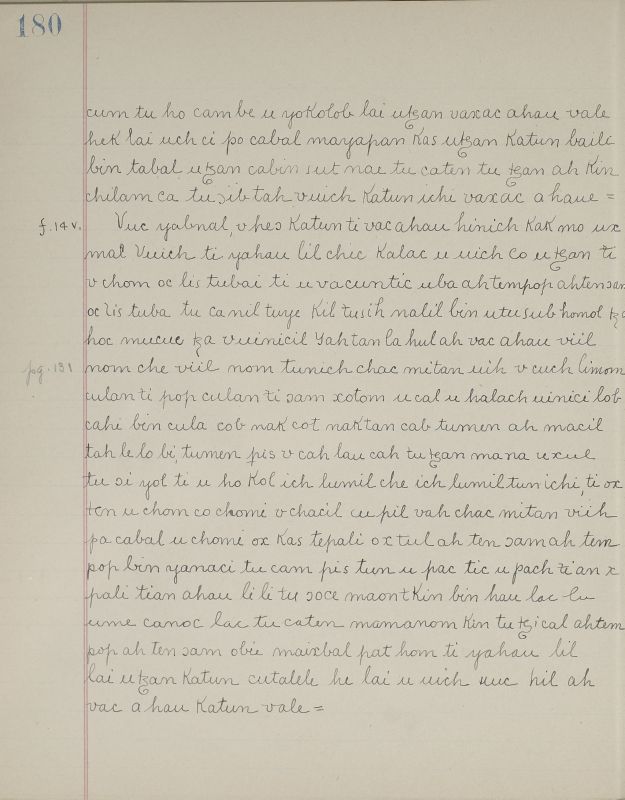 180
cum tu ho cambe u yokolob lai uꜩan vaxac ahau vale
hek lai uch ci po cabal mayapan Kas uꜩan Katun baile
bin tabal uꜩan cabin sut nac tu caten tu ꜩan ah Kin
chilam ca tu ɔib tah vuich Katun ichi vaxac ahaue =
f. 14 v. Vuc yabnal, v hes Katun ti vac ahau hinich Kak mo ux
mal Vuich ti yahau lil chic Kalac u uich co uꜩan ti
v chom oc lis tubai ti u vacuntic uba ah tempop ah ten ɔam
oc lis tuba tu canil tuye Kil tusih nalil bin utusub homol
hoc mucuc ꜩa vuinicil Yah tan la hul ah vac ahau viil
pg. 181 nom che viil nom tunich chac mitan uih v cuch limom
culan ti pop culan ti ɔam xotom u cal u halach uinici lob
cahi bin cula cob nak cot naktan cab tumen ah macil
tah le lo bi, tumen pis v cah lau cah tu ꜩan mana uxul
tu ɔi yol ti u ho Kol ich lumil che ich lumil tun ichi, ti ox
ten u chom co chomi v chacil cu pil vah chac mitan viih
pa cabal u chomi ox Kas tepali ox tul ah ten ɔam ah tem
pop bin yanaci tu cam pis tun u pac tic u pach ti an x
pali tian ahau li li tu ɔoce maont Kin bin hau lac lu
ume canoc lac tu caten mamanom Kin tu ꜩical ahtem
pop ah ten ɔam obie maixbal pat hom ti yahau lil
lai uꜩan Katun cutalele he lai u uich uuc hil ah
vac a hau Katun vale =